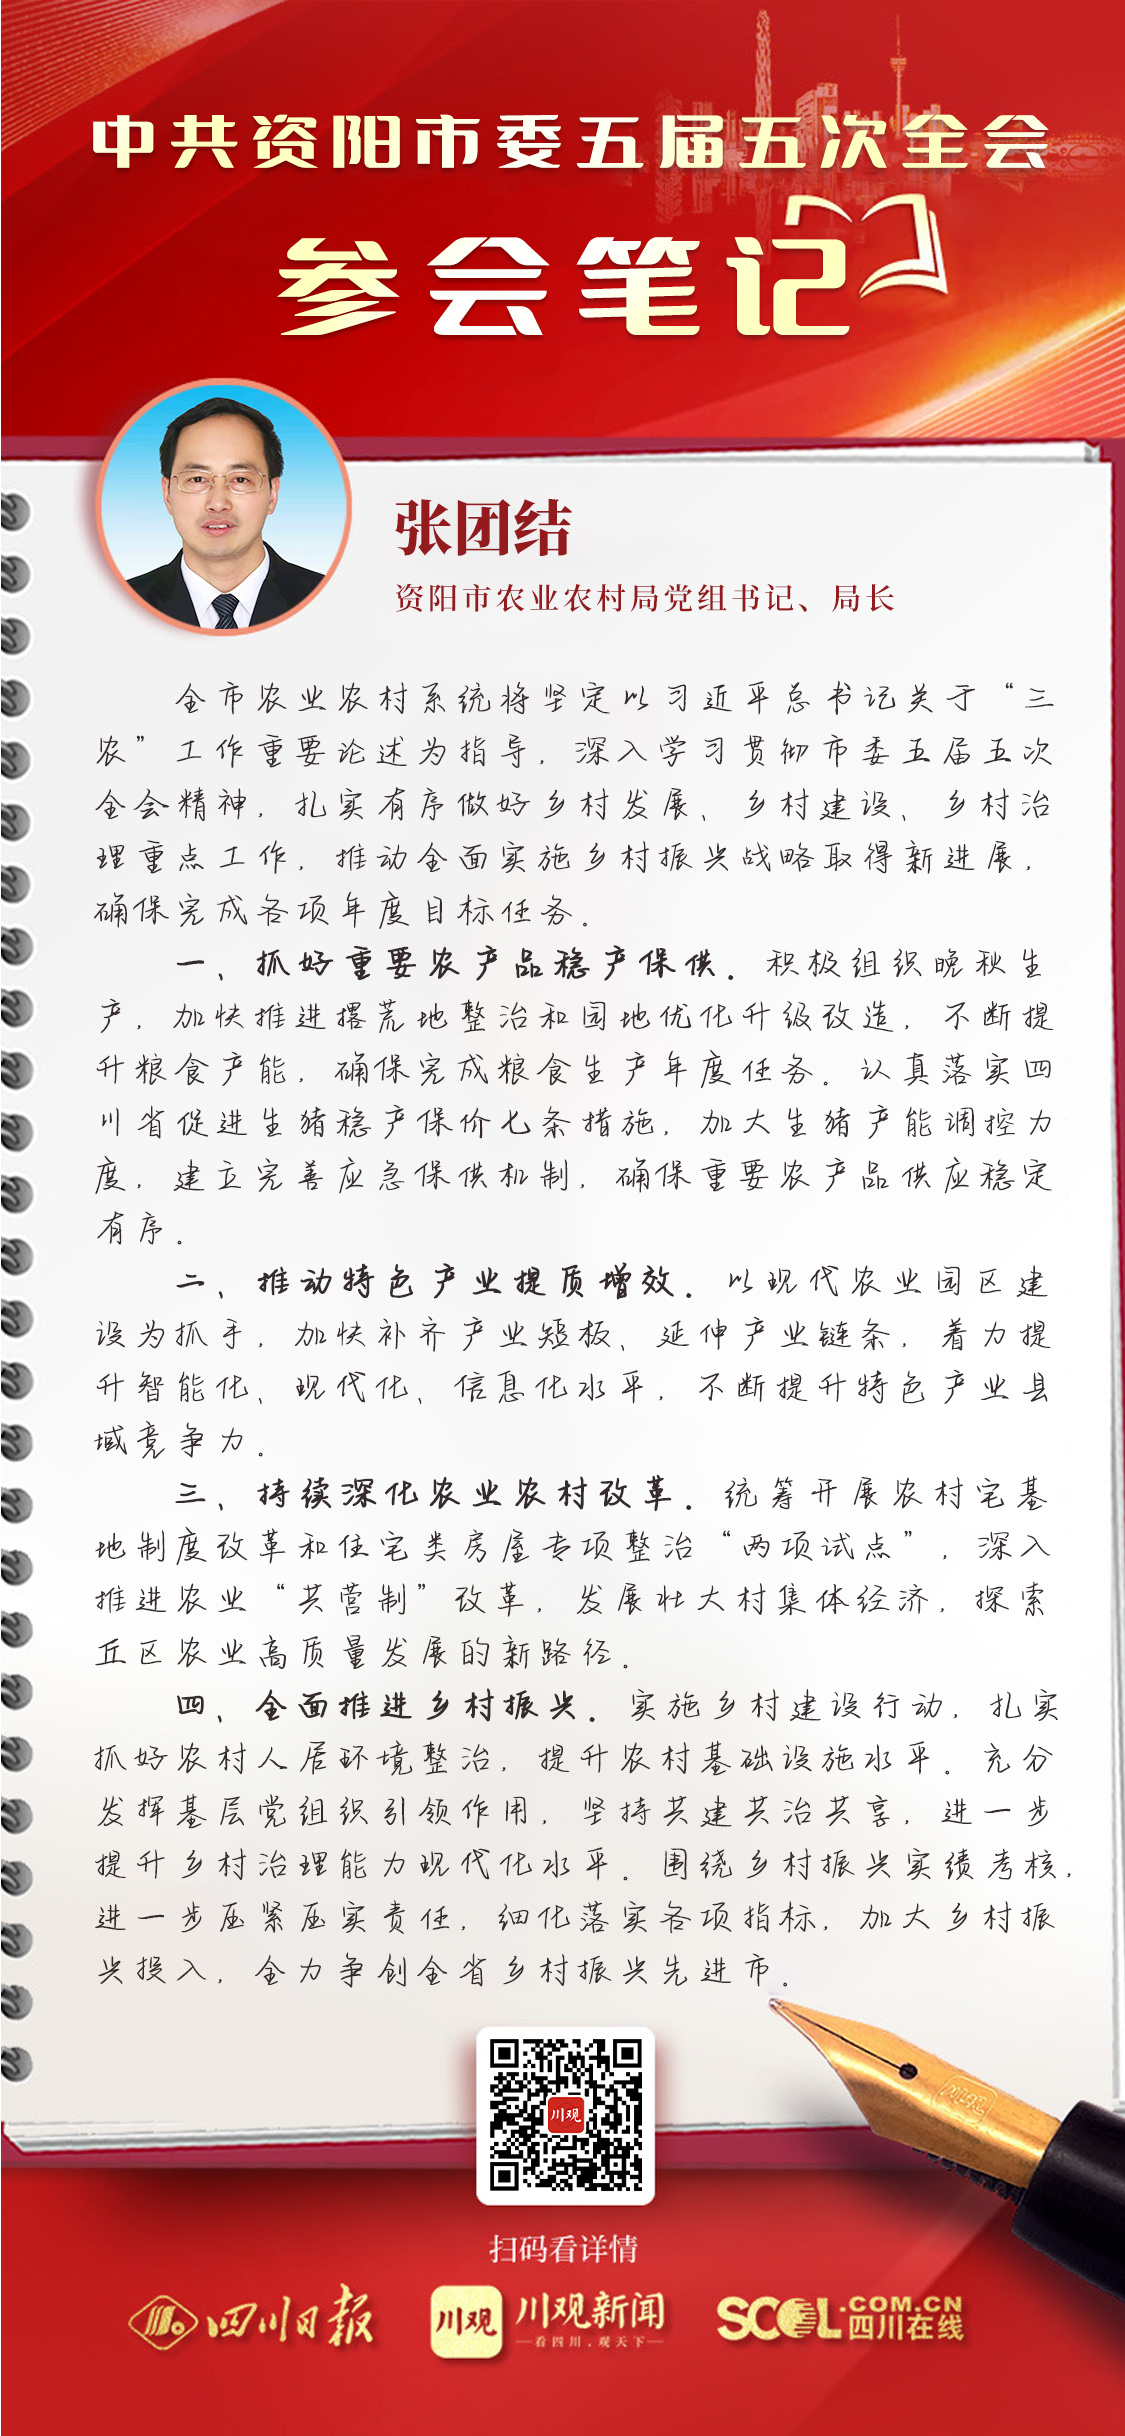 中共资阳市委五届五次全会
参会笔记
张团结
资阳市农业农村局党组书记、局长
全市农业农村系统将坚定以习近平总书记关于“三
农”工作重要论述为指导，深入学习贯彻市委五届五次
全会精神，扎实有序做好乡村发展、乡村建设、乡村治
理重点工作，推动全面实施乡村振兴战略取得新进展，
确保完成各项年度目标任务。
一、抓好重要农产品稳产保供。积极组织晚秋生
产，加快推进撂荒地整治和园地优化升级改造，不断提
升粮食产能，确保完成粮食生产年度任务。认真落实四
川省促进生猪稳产保价七条措施，加大生猪产能调控力
度，建立完善应急保供机制，确保重要农产品供应稳定
有序。
二、推动特色产业提质增效。以现代农业园区建
设为抓手，加快补齐产业短板、延伸产业链条，着力提
升智能化、现代化、信息化水平，不断提升特色产业县
域竞争力。
三、持续深化农业农村改革。统筹开展农村宅基
地制度改革和住宅类房屋专项整治“两项试点”，深入
推进农业“共营制”改革，发展壮大村集体经济，探索
丘区农业高质量发展的新路径。
四、全面推进乡村振兴。实施乡村建设行动，扎实
抓好农村人居环境整治，提升农村基础设施水平。充分
发挥基层党组织引领作用，坚持共建共治共享，进一步
提升乡村治理能力现代化水平。围绕乡村振兴实绩考核，
进一步压紧压实责任，细化落实各项指标，加大乡村振
兴投入，全力争创全省乡村振兴先进市。
川观
扫码看详情
四川日报
川观
川观新闻
看四川，观天下
SCOL.COM.CN
四川在线